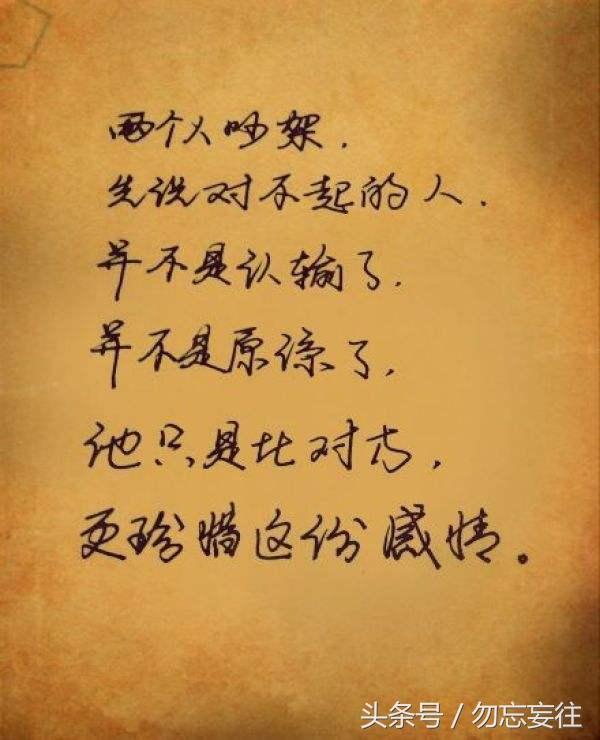 两个人吵架，
先说对不起的人，
并不是认输了，
并不是原谅了，
他只是比对方，
更珍惜这份感情。
头条号 / 勿忘妄往